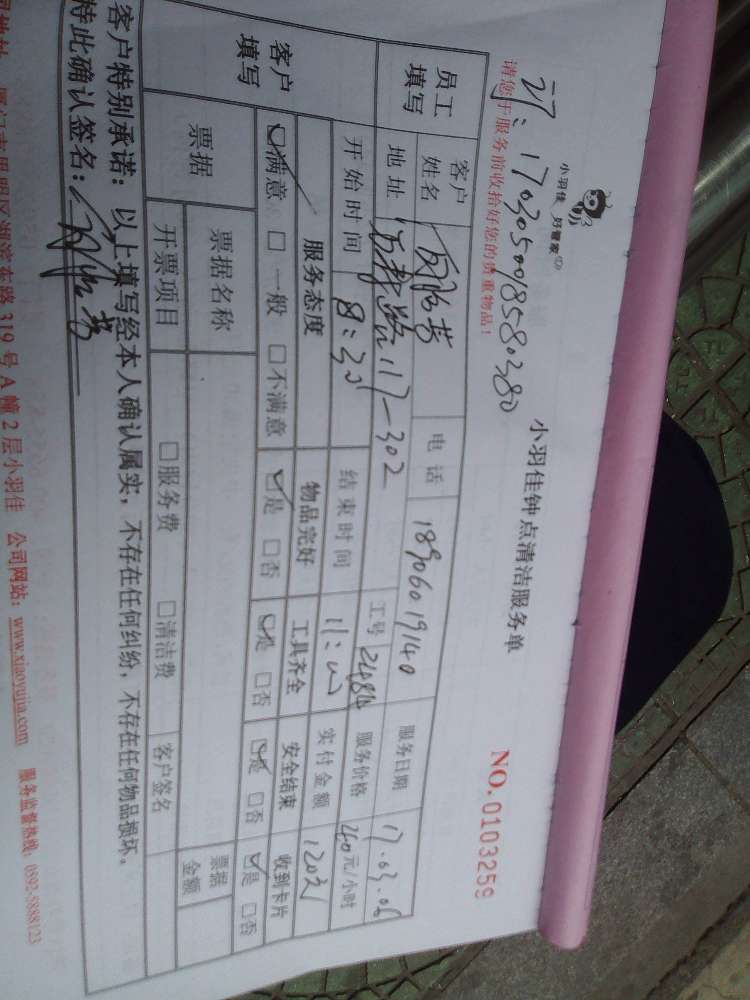 小羽佳 好管家
小羽佳钟点清洁服务单
单:1703050018580380
请您于服务前收拾好您的贵重物品!
NO.0103259
员工填写
客户姓名 电话 18906019140 服务日期 17.03.06
地址 117-302 工号 服务价格 40元/小时
开始时间 8:30 结束时间 11:30 实付金额 120元
客户填写
服务态度 物品完好 工具齐全 安全结束 收到卡片
☑满意 □一般 □不满意 ☑是 □否 ☑是 □否 ☑是 □否 ☑是 □否
票据 票据名称 票据金额
开票项目 □服务费 □清洁费 客户签名
客户特别承诺:以上填写经本人确认属实,不存在任何纠纷,不存在任何物品损坏。
特此确认签名:
厦门市思明区湖滨东路319号A幢2层小羽佳 公司网站:www.xiaoyujia.com 服务监督热线:0592-5888123